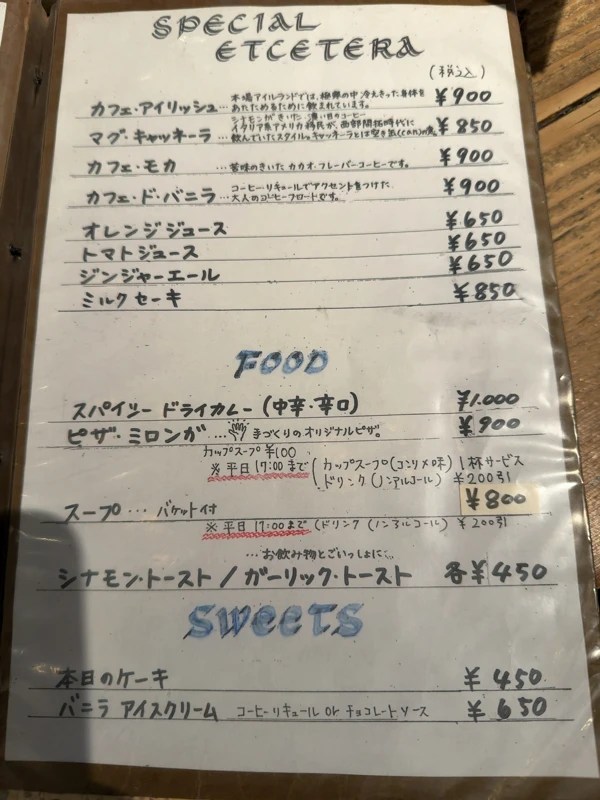 SPECIAL
ETCETERA
(税込)
カフェ・アイリッシュ…本場アイルランドでは、極寒の中 冷えきった身体を
あたためるために飲まれています。 ¥900
シナモンがきいた、濃い目のコーヒー
マグ・キャッネーラ…イタリア系アメリカ移民が、西部開拓時代に
飲んでいたスタイル。キャッネーラとは空き缶(can)の意 ¥850
カフェ・モカ …苦味のきいた カカオ・フレーバーコーヒーです。 ¥900
カフェ・ド・バニラ…コーヒー・リキュールでアクセントをつけた、
大人のコーヒーフロートです。 ¥900
オレンジジュース ¥650
トマトジュース ¥650
ジンジャーエール ¥650
ミルクセーキ ¥850
FOOD
スパイシー ドライカレー (中辛・辛口) ¥1.000
ピザ・ミロンガ…. 手づくりのオリジナルピザ。 ¥900
カップスープ ¥100
※平日17:00まで (カップスープ(コンソメ味) 1杯サービス
ドリンク(ノンアルコール) ¥200引
スープ… バケット付 ¥800
※平日17:00まで (ドリンク(ノンアルコール) ¥200引
…お飲み物とごいっしょに…
シナモン・トースト / ガーリック・トースト 各¥450
SWEETS
本日のケーキ ¥450
バニラ アイスクリーム コーヒーリキュール or チョコレートソース ¥650